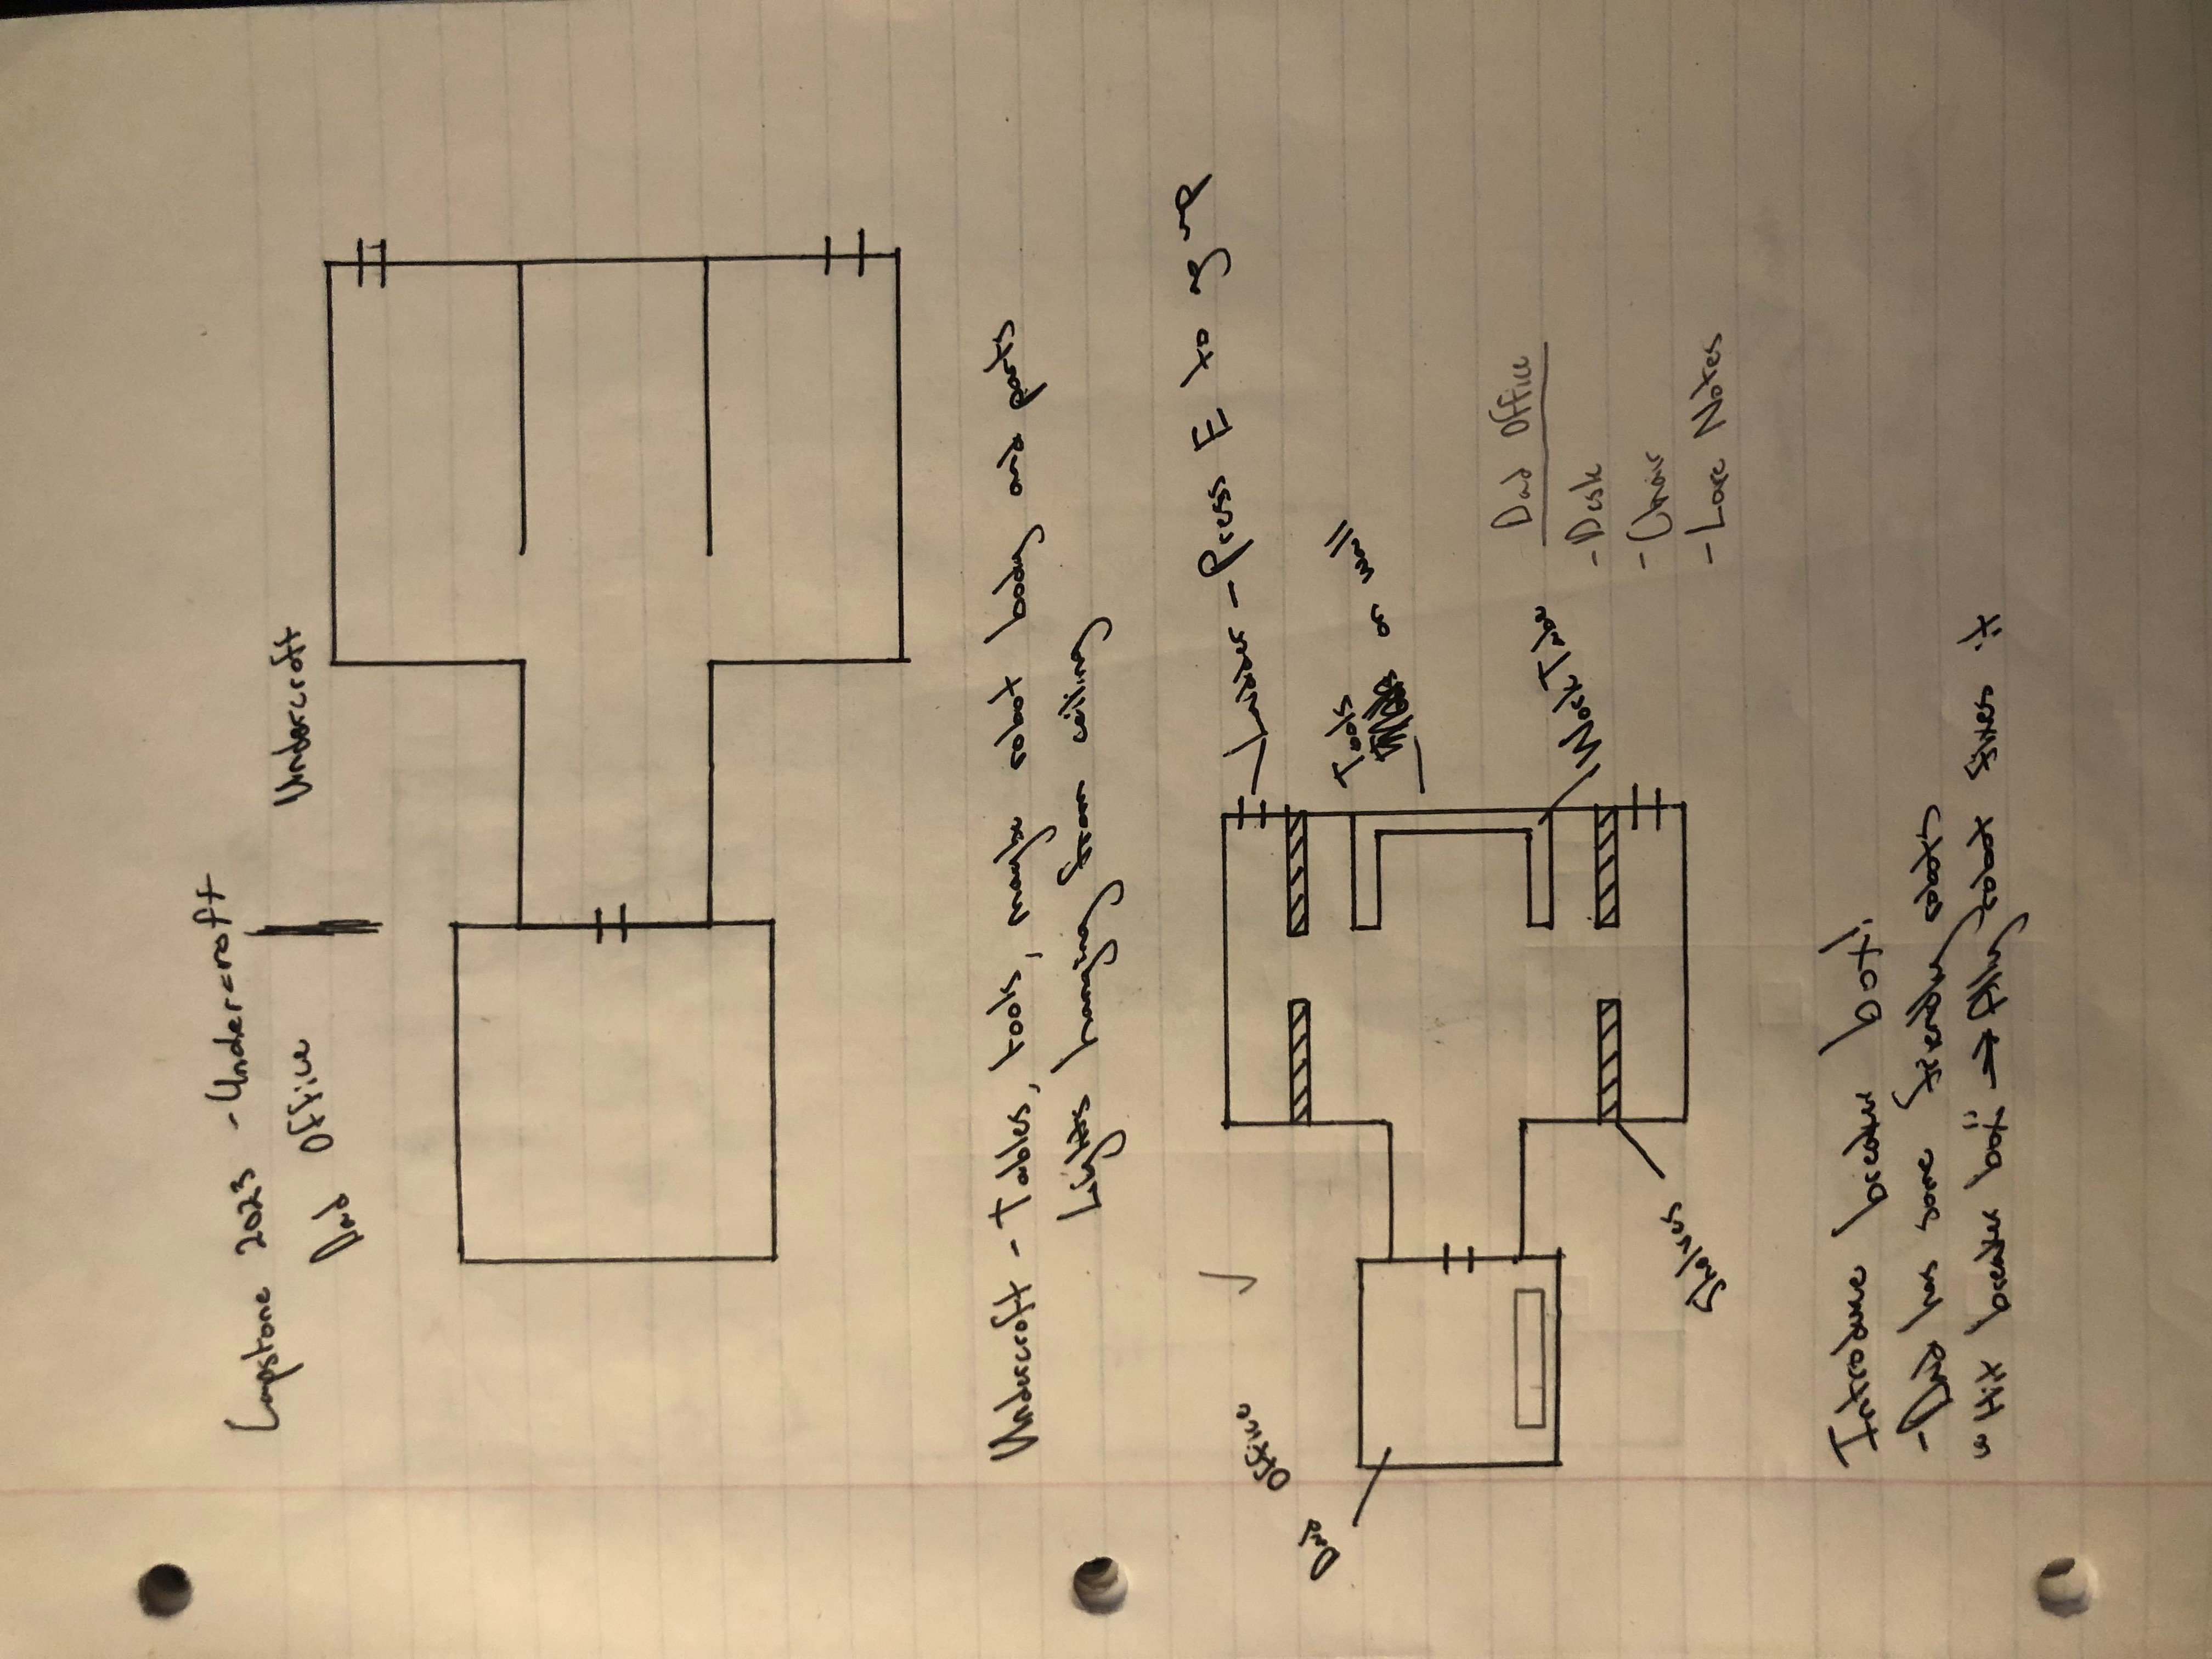 Capstone 2023 - Undercroft
Dad Office
Undercroft
Undercroft - Tables, tools, maybe robot body and parts
Lights hanging from ceiling
Dad Office
Ladder - Press E to go up
Tools
on wall
Work Table
Shelves
Dad Office
- Desk
- Chair
- Lore Notes
Introduce breaker box!
- Dad has some friendly robots
"Hit breaker box" → Ally robot fixes it